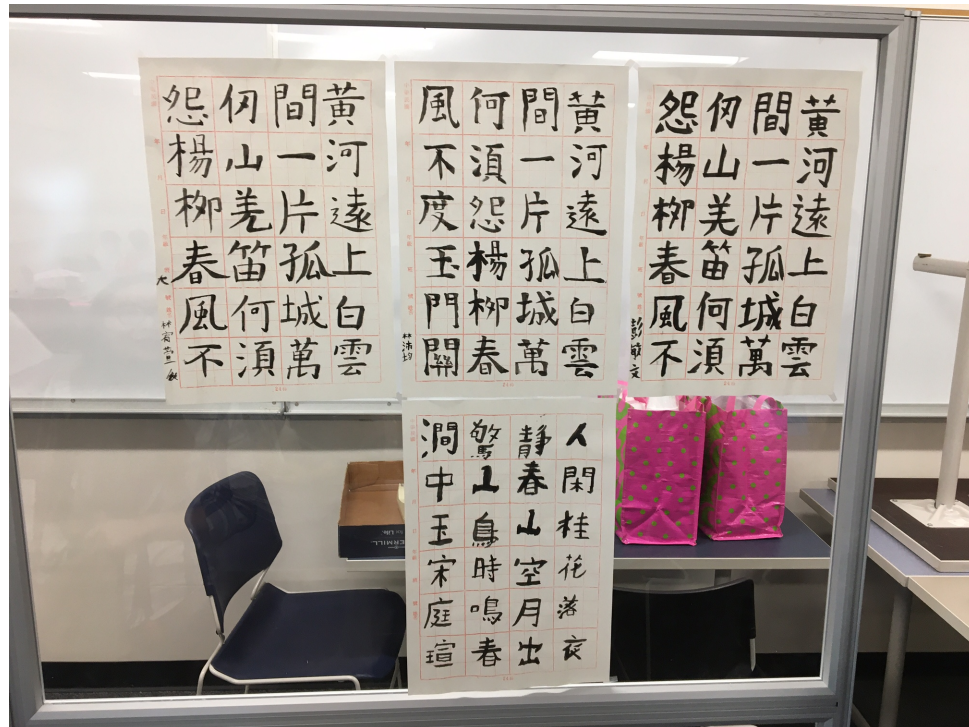 黄河遠上白雲
間一片孤城萬
仞山美笛何湏
怨楊柳春風不
黄河遠上白雲
間一片孤城萬
何湏怨楊柳春
風不度玉門關
黄河遠上白雲
間一片孤城萬
仞山羌笛何湏
怨楊柳春風不
人閑桂花落夜
靜春山空月出
驚山鳥時鳴春
澗中玉宋庭瑄